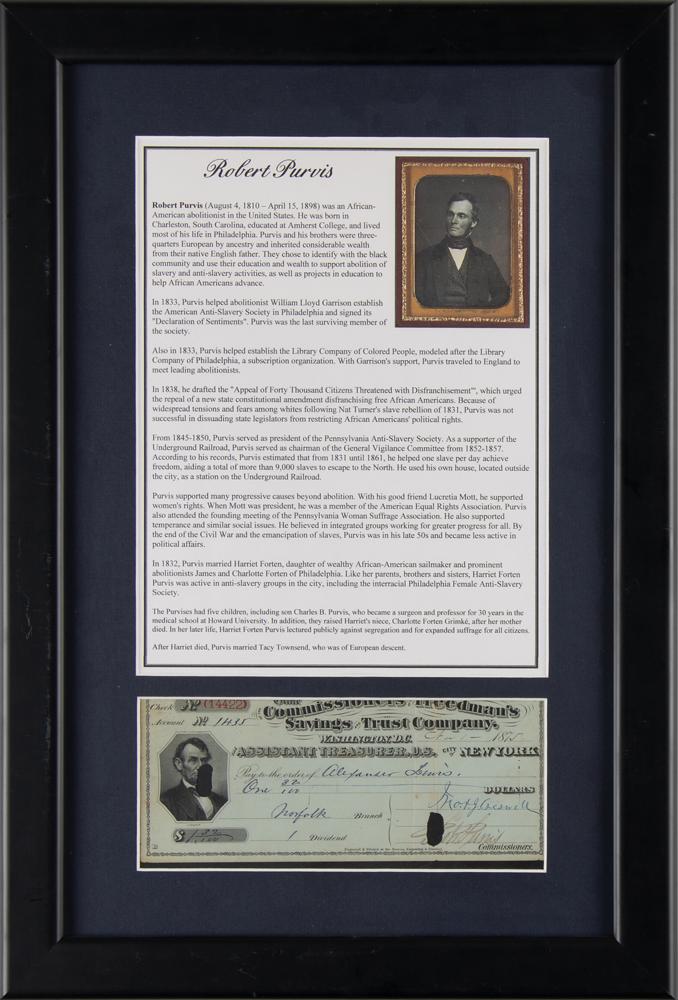 Robert Purvis
Robert Purvis (August 4, 1810 – April 15, 1898) was an African-
American abolitionist in the United States. He was born in
Charleston, South Carolina, educated at Amherst College, and lived
most of his life in Philadelphia. Purvis and his brothers were three-
quarters European by ancestry and inherited considerable wealth
from their native English father. They chose to identify with the black
community and use their education and wealth to support abolition of
slavery and anti-slavery activities, as well as projects in education to
help African Americans advance.
In 1833, Purvis helped abolitionist William Lloyd Garrison establish
the American Anti-Slavery Society in Philadelphia and signed its
"Declaration of Sentiments". Purvis was the last surviving member of
the society.
Also in 1833, Purvis helped establish the Library Company of Colored People, modeled after the Library
Company of Philadelphia, a subscription organization. With Garrison's support, Purvis traveled to England to
meet leading abolitionists.
In 1838, he drafted the "Appeal of Forty Thousand Citizens Threatened with Disfranchisement"', which urged
the repeal of a new state constitutional amendment disfranchising free African Americans. Because of
widespread tensions and fears among whites following Nat Turner's slave rebellion of 1831, Purvis was not
successful in dissuading state legislators from restricting African Americans' political rights.
From 1845-1850, Purvis served as president of the Pennsylvania Anti-Slavery Society. As a supporter of the
Underground Railroad, Purvis served as chairman of the General Vigilance Committee from 1852-1857.
According to his records, Purvis estimated that from 1831 until 1861, he helped one slave per day achieve
freedom, aiding a total of more than 9,000 slaves to escape to the North. He used his own house, located outside
the city, as a station on the Underground Railroad.
Purvis supported many progressive causes beyond abolition. With his good friend Lucretia Mott, he supported
women's rights. When Mott was president, he was a member of the American Equal Rights Association. Purvis
also attended the founding meeting of the Pennsylvania Woman Suffrage Association. He also supported
temperance and similar social issues. He believed in integrated groups working for greater progress for all. By
the end of the Civil War and the emancipation of slaves, Purvis was in his late 50s and became less active in
political affairs.
In 1832, Purvis married Harriet Forten, daughter of wealthy African-American sailmaker and prominent
abolitionists James and Charlotte Forten of Philadelphia. Like her parents, brothers and sisters, Harriet Forten
Purvis was active in anti-slavery groups in the city, including the interracial Philadelphia Female Anti-Slavery
Society.
The Purvises had five children, including son Charles B. Purvis, who became a surgeon and professor for 30 years in the
medical school at Howard University. In addition, they raised Harriet's niece, Charlotte Forten Grimké, after her mother
died. In her later life, Harriet Forten Purvis lectured publicly against segregation and for expanded suffrage for all citizens.
After Harriet died, Purvis married Tacy Townsend, who was of European descent.
Check No (14422)
Commissioners Freedman's
Account No 1435
Savings & Trust Company.
WASHINGTON, D.C.
ASSISTANT TREASURER, U.S. NEW YORK
Pay to the order of Alexander Lewis.
One 32/100 DOLLARS
Norfolk Branch
$ 1 32/100
1 Dividend
Commissioners.